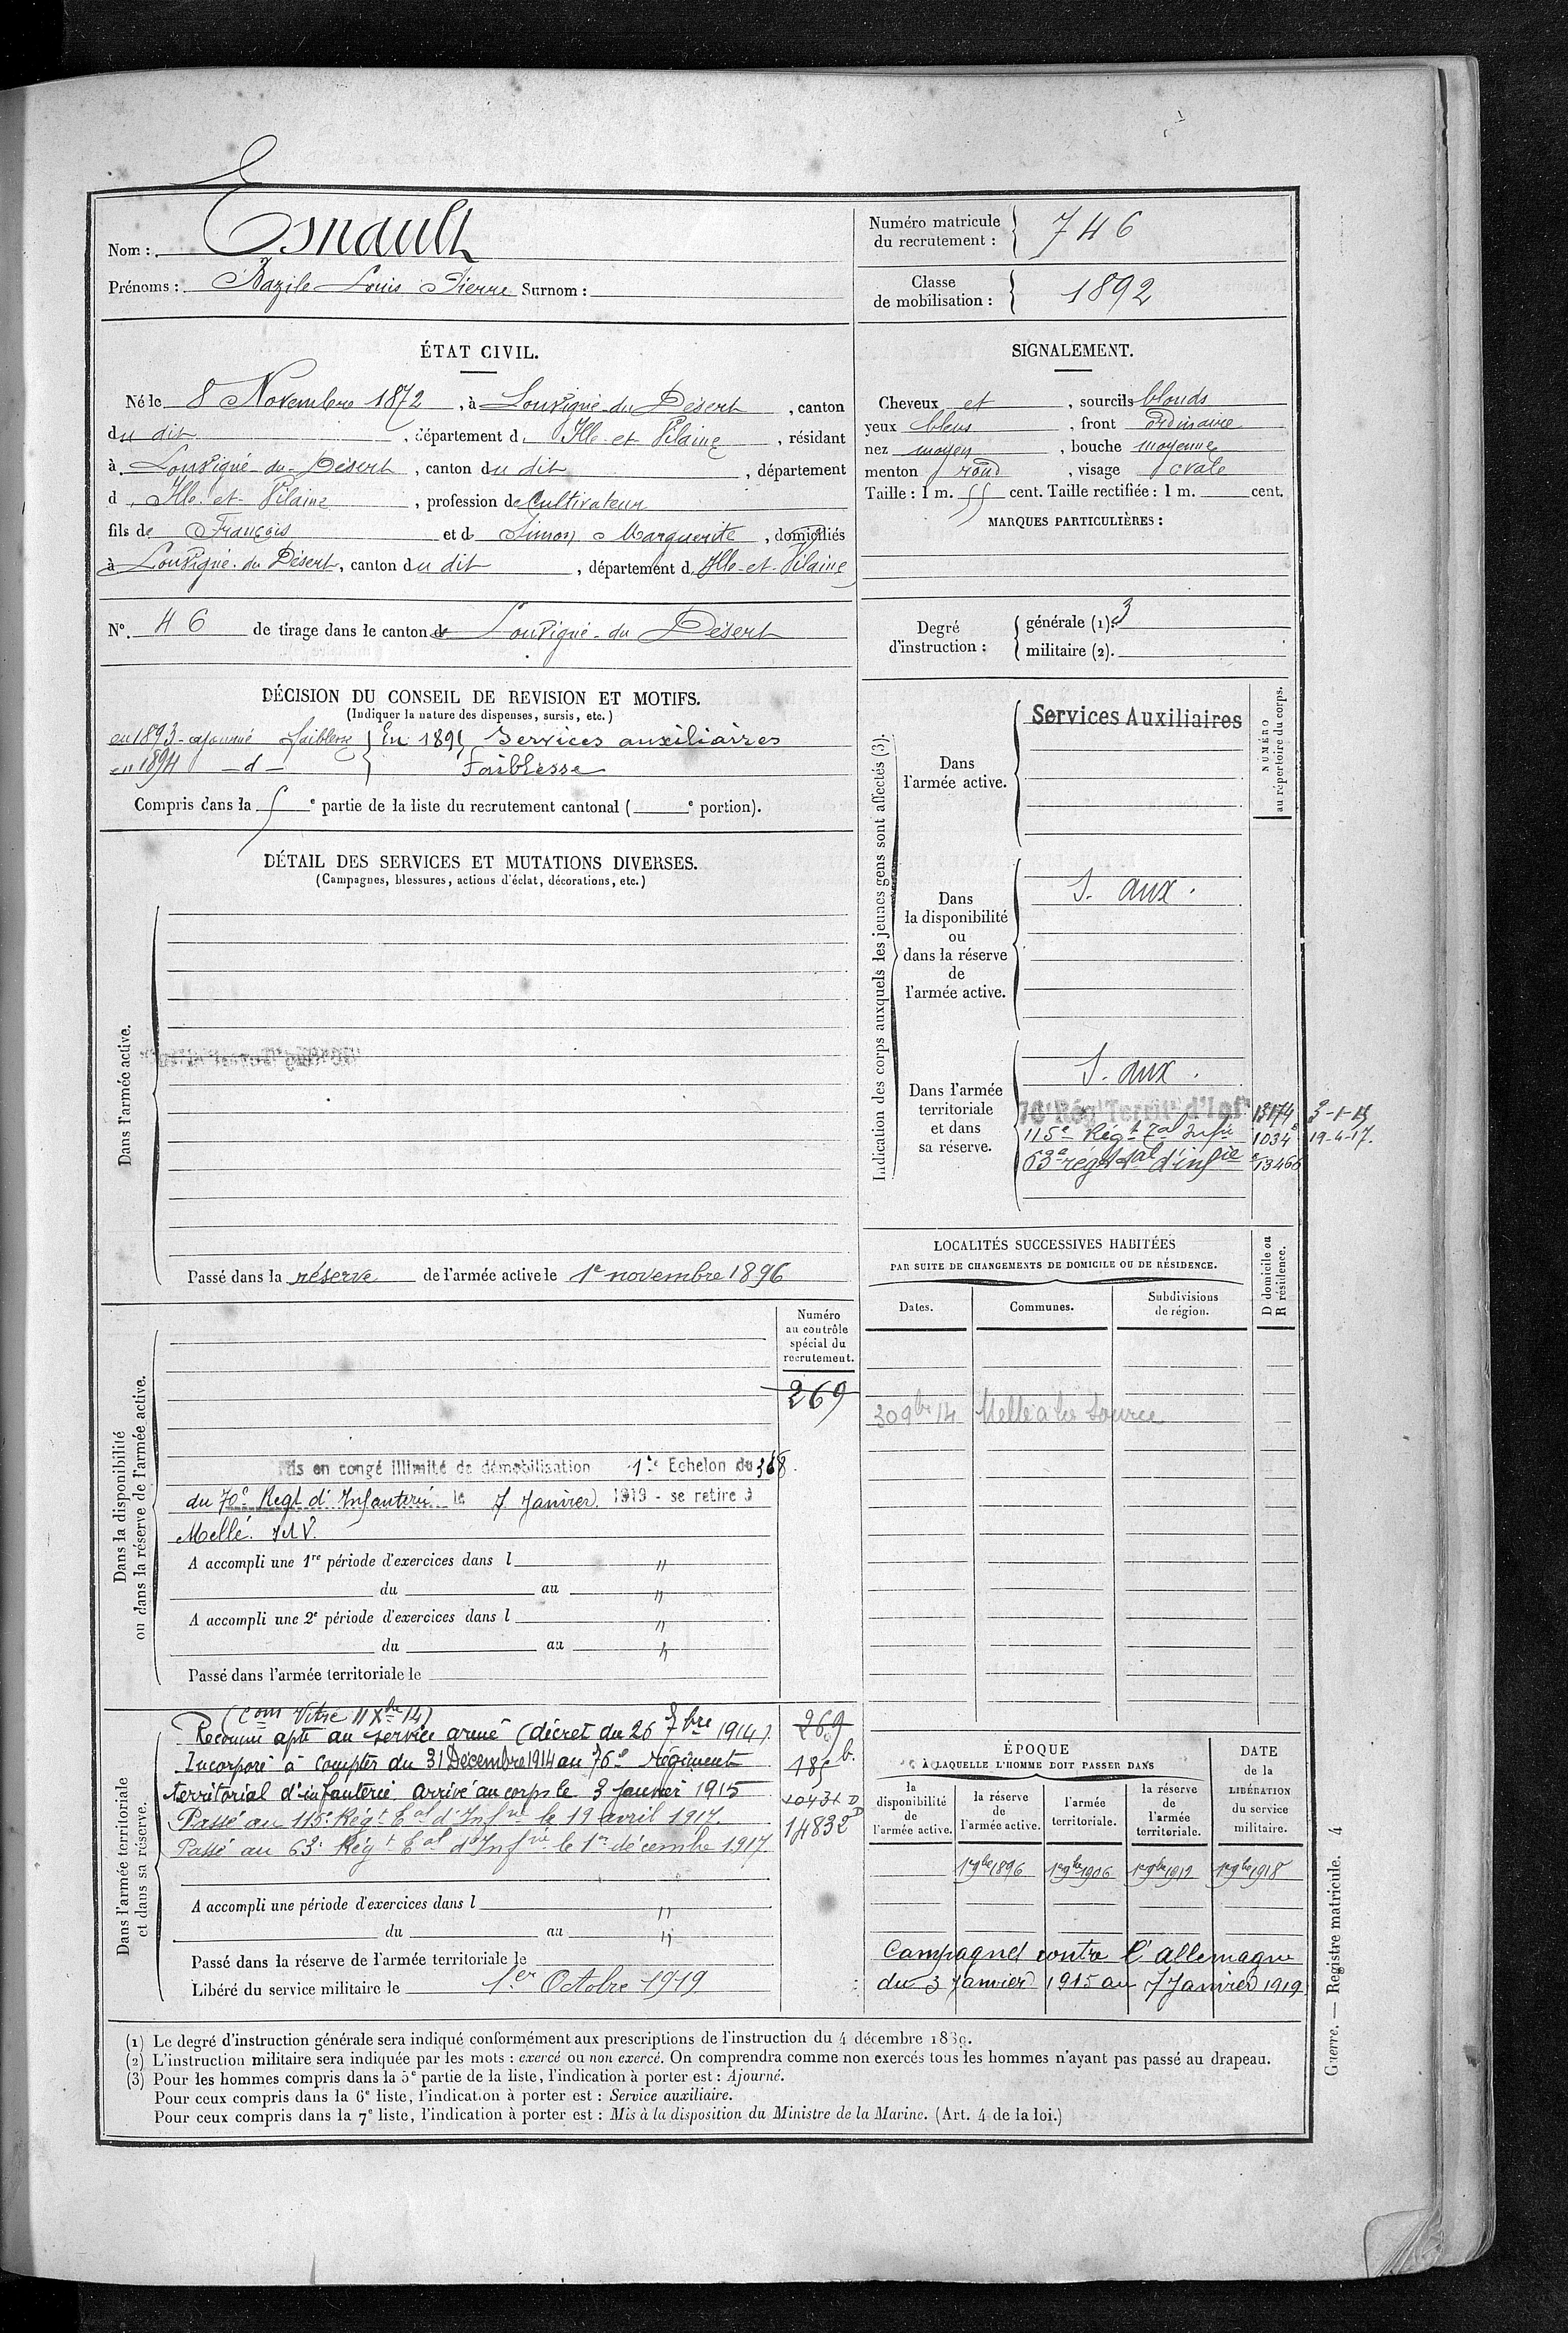 Nom : Esnault
Prénoms : Bazile Louis Pierre Surnom :
Numéro matricule du recrutement : 746
Classe de mobilisation : 1892
ÉTAT CIVIL.
Né le 8 Novembre 1872, à Louvigné-du-Désert, canton
du dit, département d'Ille-et-Vilaine, résidant
à Louvigné-du-Désert, canton du dit, département
d'Ille-et-Vilaine, profession de Cultivateur
fils de François et de Simon Marguerite, domiciliés
à Louvigné-du-Désert, canton du dit, département d'Ille-et-Vilaine
N°. 46 de tirage dans le canton de Louvigné-du-Désert
SIGNALEMENT.
Cheveux et, sourcils blonds
yeux bleus, front ordinaire
nez moyen, bouche moyenne
menton rond, visage ovale
Taille : 1 m. 55 cent. Taille rectifiée : 1 m. cent.
MARQUES PARTICULIÈRES :
Degré d'instruction :
générale (1). 3
militaire (2).
DÉCISION DU CONSEIL DE REVISION ET MOTIFS.
(Indiquer la nature des dispenses, sursis, etc.)
en 1893 - ajourné faiblesse } En 1895 Services auxiliaires
en 1894 - d - } Faiblesse
Compris dans la e partie de la liste du recrutement cantonal ( e portion).
DÉTAIL DES SERVICES ET MUTATIONS DIVERSES.
(Campagnes, blessures, actions d'éclat, décorations, etc.)
Dans l'armée active.
Passé dans la réserve de l'armée active le 1e novembre 1896
Indication des corps auxquels les jeunes gens sont affectés (3).
NUMÉRO au répertoire du corps.
Dans l'armée active.
Services Auxiliaires
Dans la disponibilité ou dans la réserve de l'armée active.
S. aux.
Dans l'armée territoriale et dans sa réserve.
S. aux.
76e Rég Territ d'Infie 3-1-15
115e Régt Tal Infie 1034 19-4-17.
63e régt tal d'infie 13466
LOCALITÉS SUCCESSIVES HABITÉES
PAR SUITE DE CHANGEMENTS DE DOMICILE OU DE RÉSIDENCE.
Dates.
Communes.
Subdivisions de région.
D domicile ou R résidence.
30 9bre 14 Mellé
Dans la disponibilité ou dans la réserve de l'armée active.
Numéro au contrôle spécial du recrutement.
269
Mis en congé illimité de démobilisation 1er Echelon du 368
du 70e Regt d'Infanterie le 7 Janvier 1919 - se retire à
Mellé. I&V.
A accompli une 1re période d'exercices dans l "
du au "
A accompli une 2e période d'exercices dans l "
du au "
Passé dans l'armée territoriale le
Dans l'armée territoriale et dans sa réserve.
(Com Vitré 11 Xbre 14)
Reconnu apte au service armé (décret du 26 7bre 1914). 269
Incorporé à compter du 31 Décembre 1914 au 76e régiment 185 b.
territorial d'infanterie arrivé au corps le 3 Janvier 1915
Passé au 115e Régt Tal d'Infrie le 19 avril 1917. 14832 D
Passé au 63e Régt Tal d'Infrie le 1er décembre 1917.
A accompli une période d'exercices dans l "
du au "
Passé dans la réserve de l'armée territoriale le
Libéré du service militaire le 1er Octobre 1919
ÉPOQUE
À LAQUELLE L'HOMME DOIT PASSER DANS
la disponibilité de l'armée active.
la réserve de l'armée active.
l'armée territoriale.
la réserve de l'armée territoriale.
DATE de la LIBÉRATION du service militaire.
1er 9bre 1896 1er 9bre 1906 1er 9bre 1912 1er 9bre 1918
Campagnes contre l'allemagne
du 3 Janvier 1915 au 7 Janvier 1919
(1) Le degré d'instruction générale sera indiqué conformément aux prescriptions de l'instruction du 4 décembre 1889.
(2) L'instruction militaire sera indiquée par les mots : exercé ou non exercé. On comprendra comme non exercés tous les hommes n'ayant pas passé au drapeau.
(3) Pour les hommes compris dans la 5e partie de la liste, l'indication à porter est : Ajourné.
Pour ceux compris dans la 6e liste, l'indication à porter est : Service auxiliaire.
Pour ceux compris dans la 7e liste, l'indication à porter est : Mis à la disposition du Ministre de la Marine. (Art. 4 de la loi.)
Guerre. — Registre matricule. 4